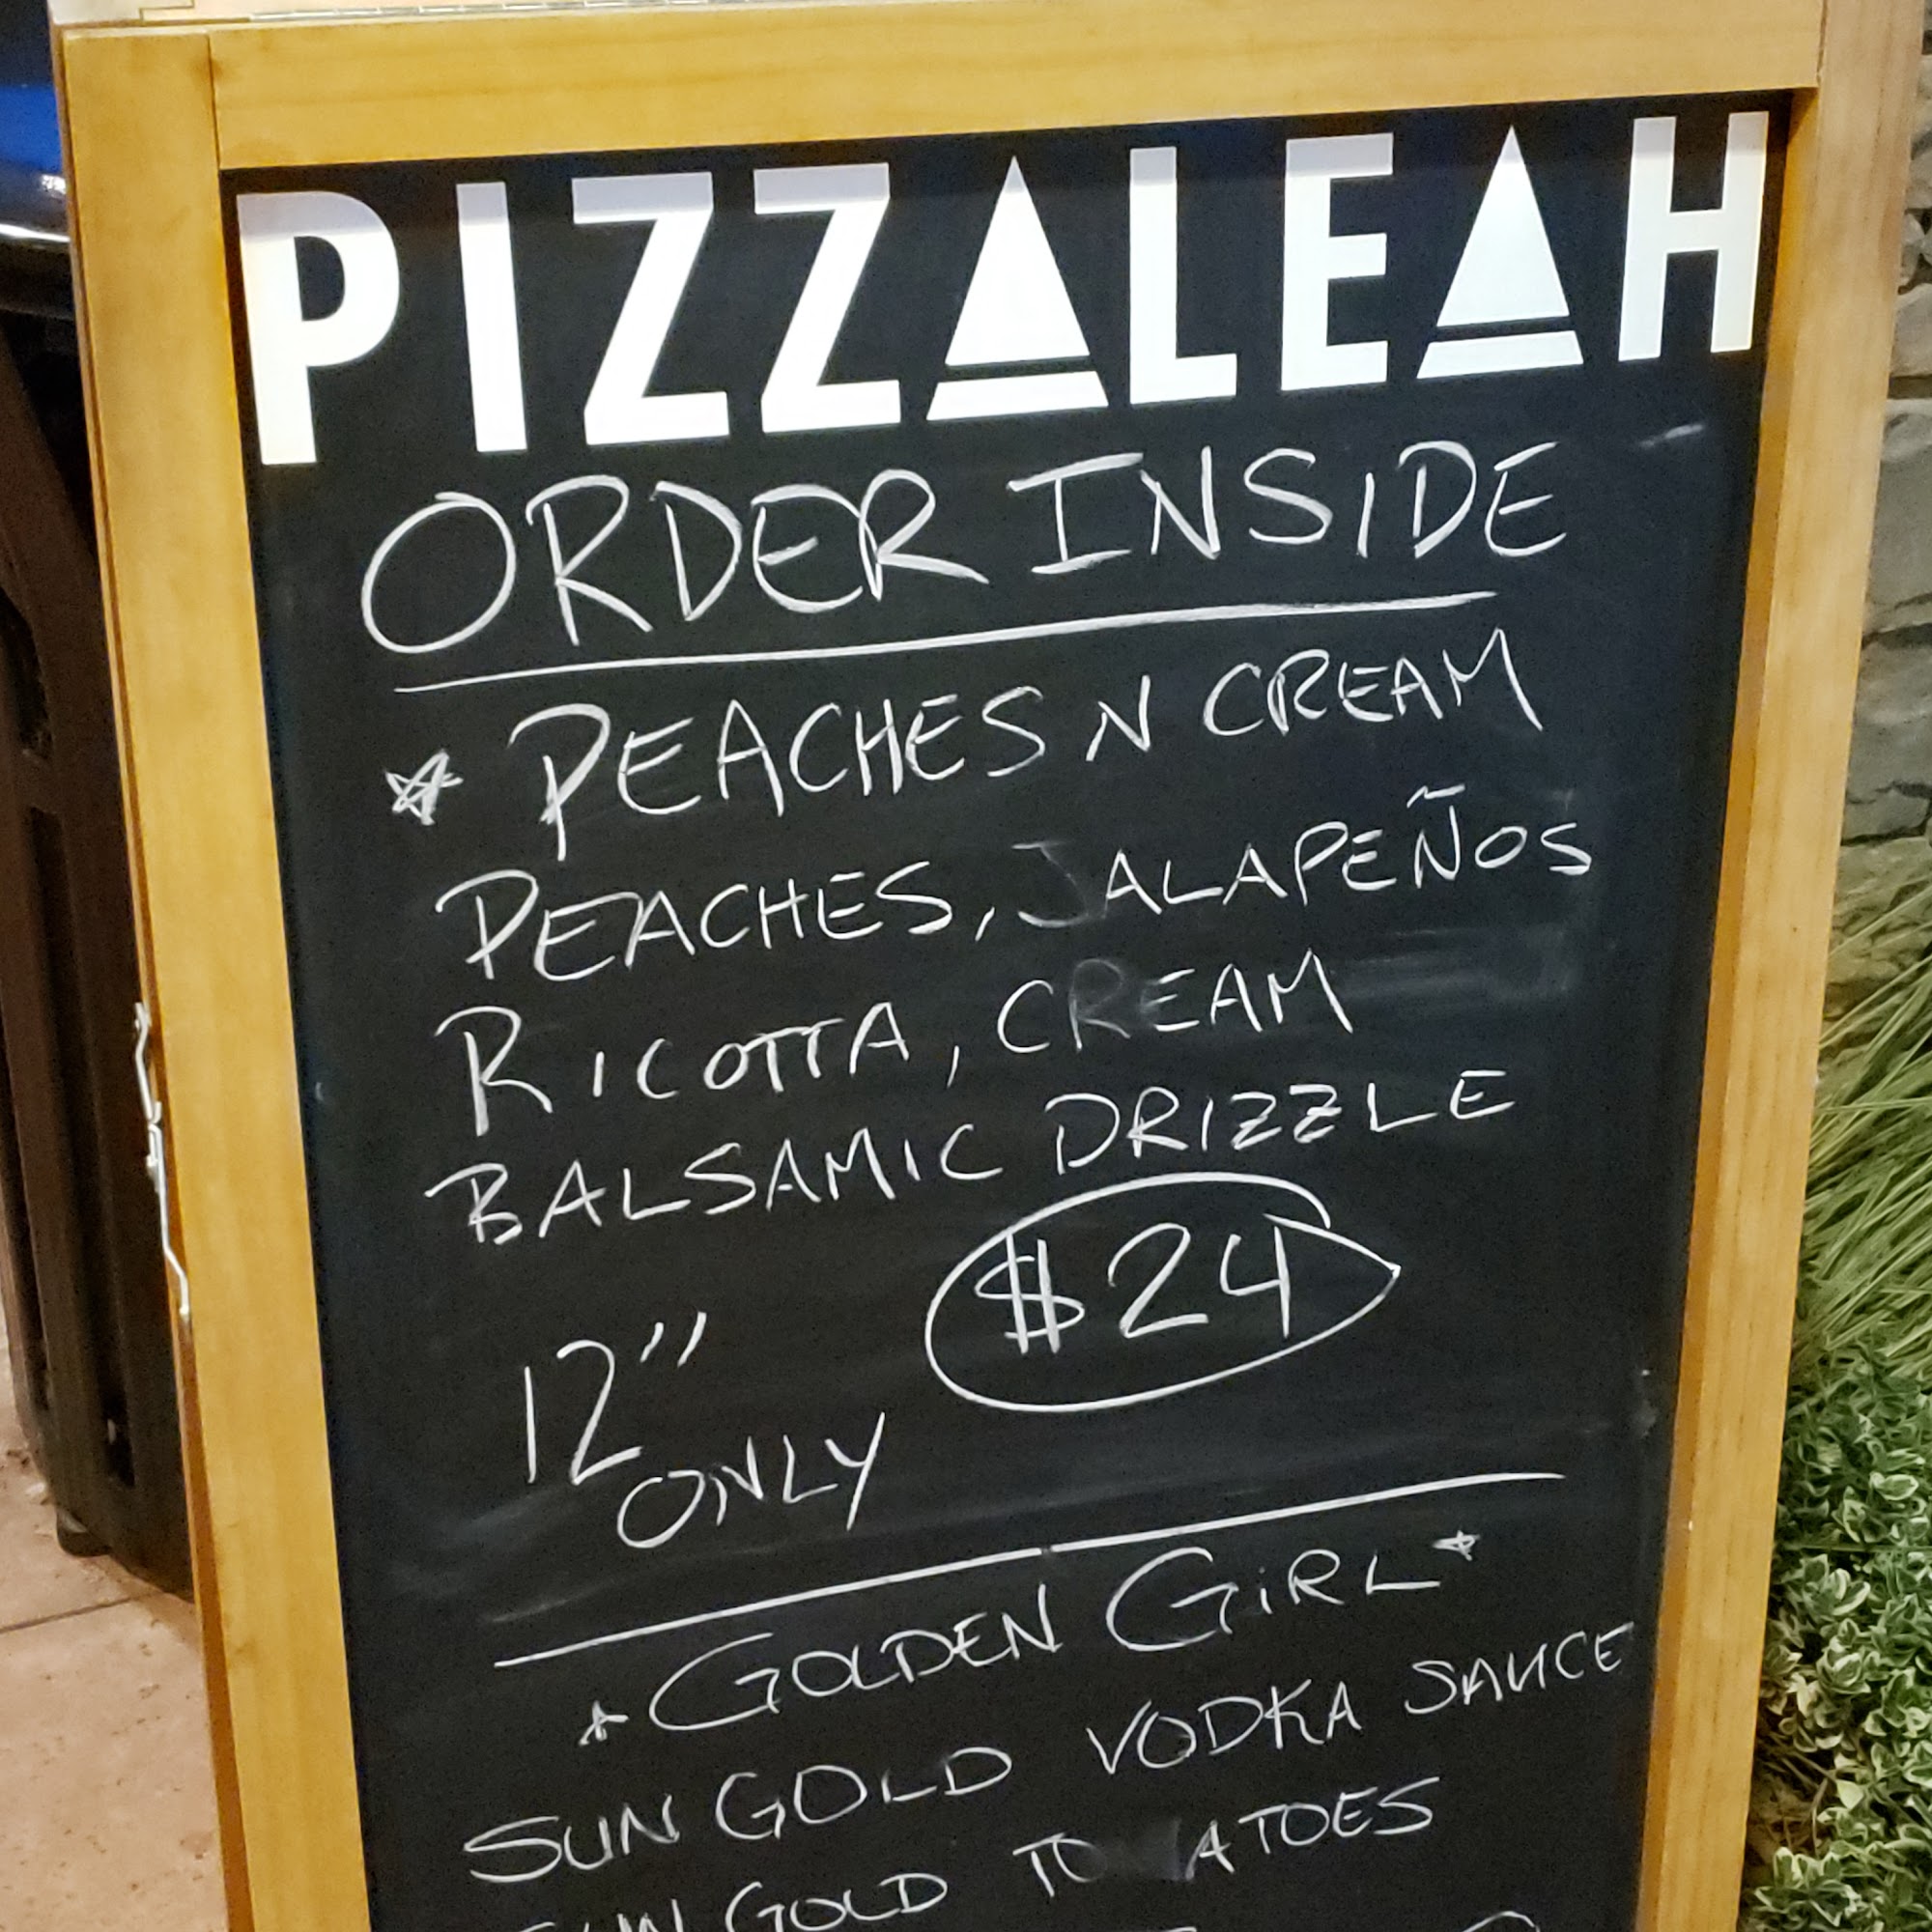 PIZZALEAH
ORDER INSIDE
PEACHES N CREAM
PEACHES, JALAPEÑOS
RICOTTA, CREAM
BALSAMIC DRIZZLE
$24
12" ONLY
GOLDEN GiRL
SUN GOLD VODKA SAUCE
SUN GOLD TO ATOES